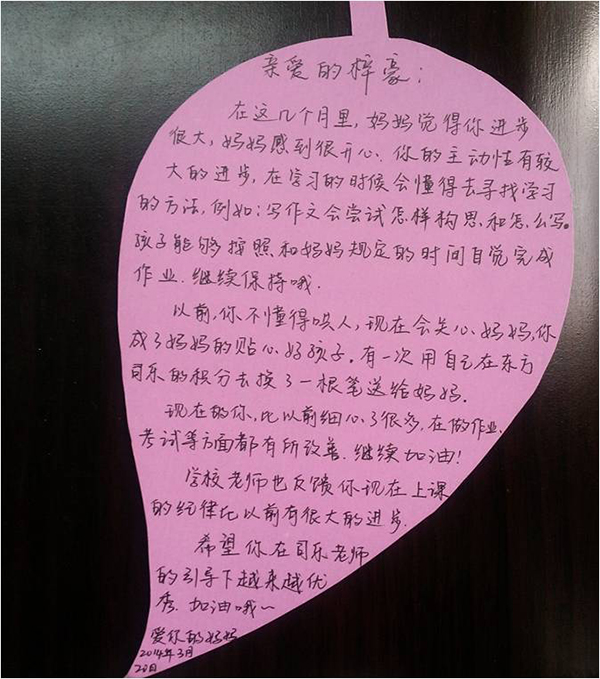 亲爱的梓豪:
在这几个月里,妈妈觉得你进步
很大,妈妈感到很开心.你的主动性有较
大的进步,在学习的时候会懂得去寻找学习
的方法,例如:写作文会尝试怎样构思和怎么写。
孩子能够按照和妈妈规定的时间自觉完成
作业.继续保持哦.
以前,你不懂得哄人,现在会关心妈妈,你
成了妈妈的贴心好孩子.有一次用自己在东方
司乐的积分去换了一根笔送给妈妈.
现在的你,比以前细心了很多,在做作业、
考试等方面都有所改善.继续加油!
学校老师也反馈你现在上课
的纪律比以前有很大的进步.
希望你在司乐老师
的引导下越来越优
秀.加油哦~
爱你的妈妈
2014年3月
28日